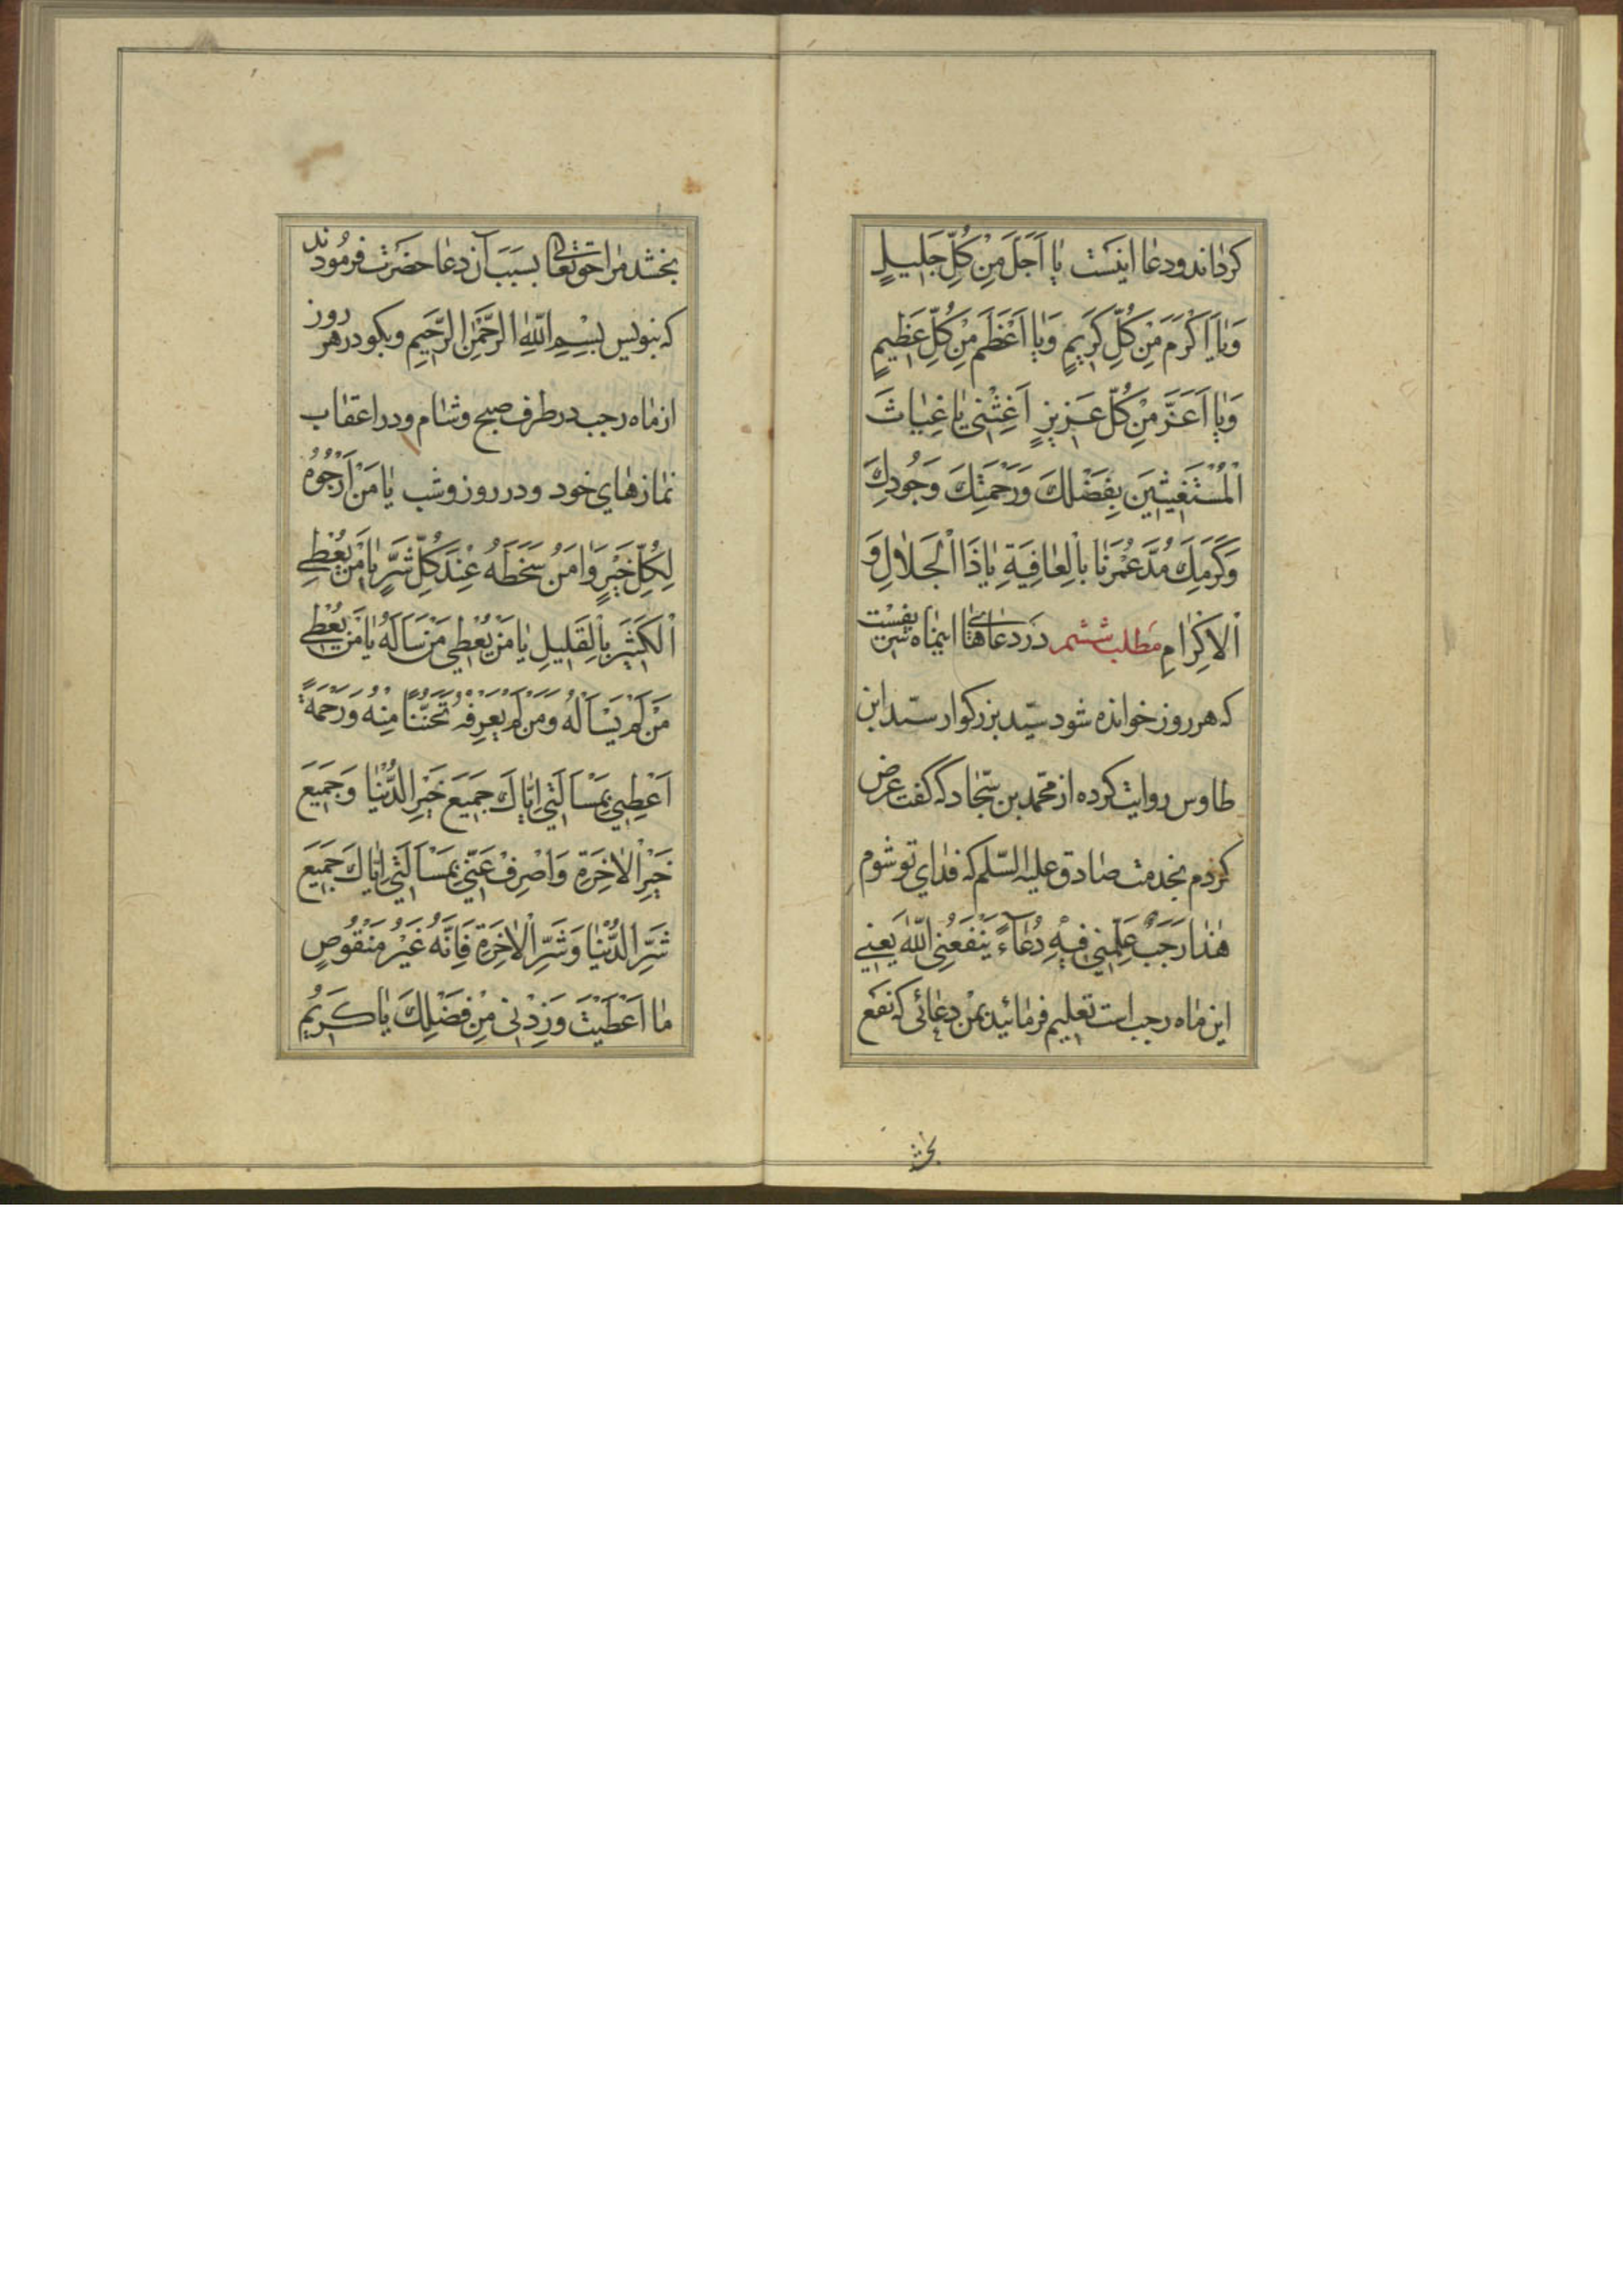 كرداند ودعا اینست یا اَجَلَّ مِنْ كُلِّ جَلیلٍ
وَیا اَكْرَمَ مِنْ كُلِّ كَریمٍ وَیا اَعْظَمَ مِنْ كُلِّ عَظیمٍ
وَیا اَعَزَّ مِنْ كُلِّ عَزیزٍ اَغِثْنی یا غِیاثَ
الْمُسْتَغیثینَ بِفَضْلِكَ وَرَحْمَتِكَ وَجُودِكَ
وَكَرَمِكَ مُدَّ عُمْرَنا بِالْعافِیَةِ یا ذَا الْجَلالِ وَ
الْاِكْرامِ مطلب ششم در دعاهای اینماه شریفست
كه هر روز خوانده شود سیّد بزركوار سیّد ابن
طاوس روایت كرده از محمّد بن سجّاد كه كفت عرض
كردم بخدمت صادق علیه السّلم كه فدای تو شوم
هٰذا رَجَبٌ عَلِّمْنی فیهِ دُعآءً یَنْفَعُنِی اللّٰهُ یعنی
این ماه رجب است تعلیم فرمائید بمن دعائی كه نفع
بخشد
بخشد مرا حق تعالی بسبب آن دعا حضرت فرمودند
كه بنویس بِسْمِ اللّٰهِ الرَّحْمٰنِ الرَّحیمِ وبكو در هر روز
از ماه رجب در طرف صبح وشام ودر اعقاب
نمازهای خود ودر روز وشب یا مَنْ اَرْجُوهُ
لِكُلِّ خَیْرٍ وَامَنُ سَخَطَهُ عِنْدَ كُلِّ شَرٍّ یا مَنْ یُعْطِی
الْكَثیرَ بِالْقَلیلِ یا مَنْ یُعْطی مَنْ سَاَلَهُ یا مَنْ یُعْطی
مَنْ لَمْ یَسْاَلْهُ وَمَنْ لَمْ یَعْرِفْهُ تَحَنُّنًا مِنْهُ وَرَحْمَةً
اَعْطِنی بِمَسْاَلَتی اِیّاكَ جَمیعَ خَیْرِ الدُّنْیا وَجَمیعَ
خَیْرِ الْاٰخِرَةِ وَاصْرِفْ عَنّی بِمَسْاَلَتی اِیّاكَ جَمیعَ
شَرِّ الدُّنْیا وَشَرِّ الْاٰخِرَةِ فَاِنَّهُ غَیْرُ مَنْقُوصٍ
ما اَعْطَیْتَ وَزِدْنی مِنْ فَضْلِكَ یا كَریمُ